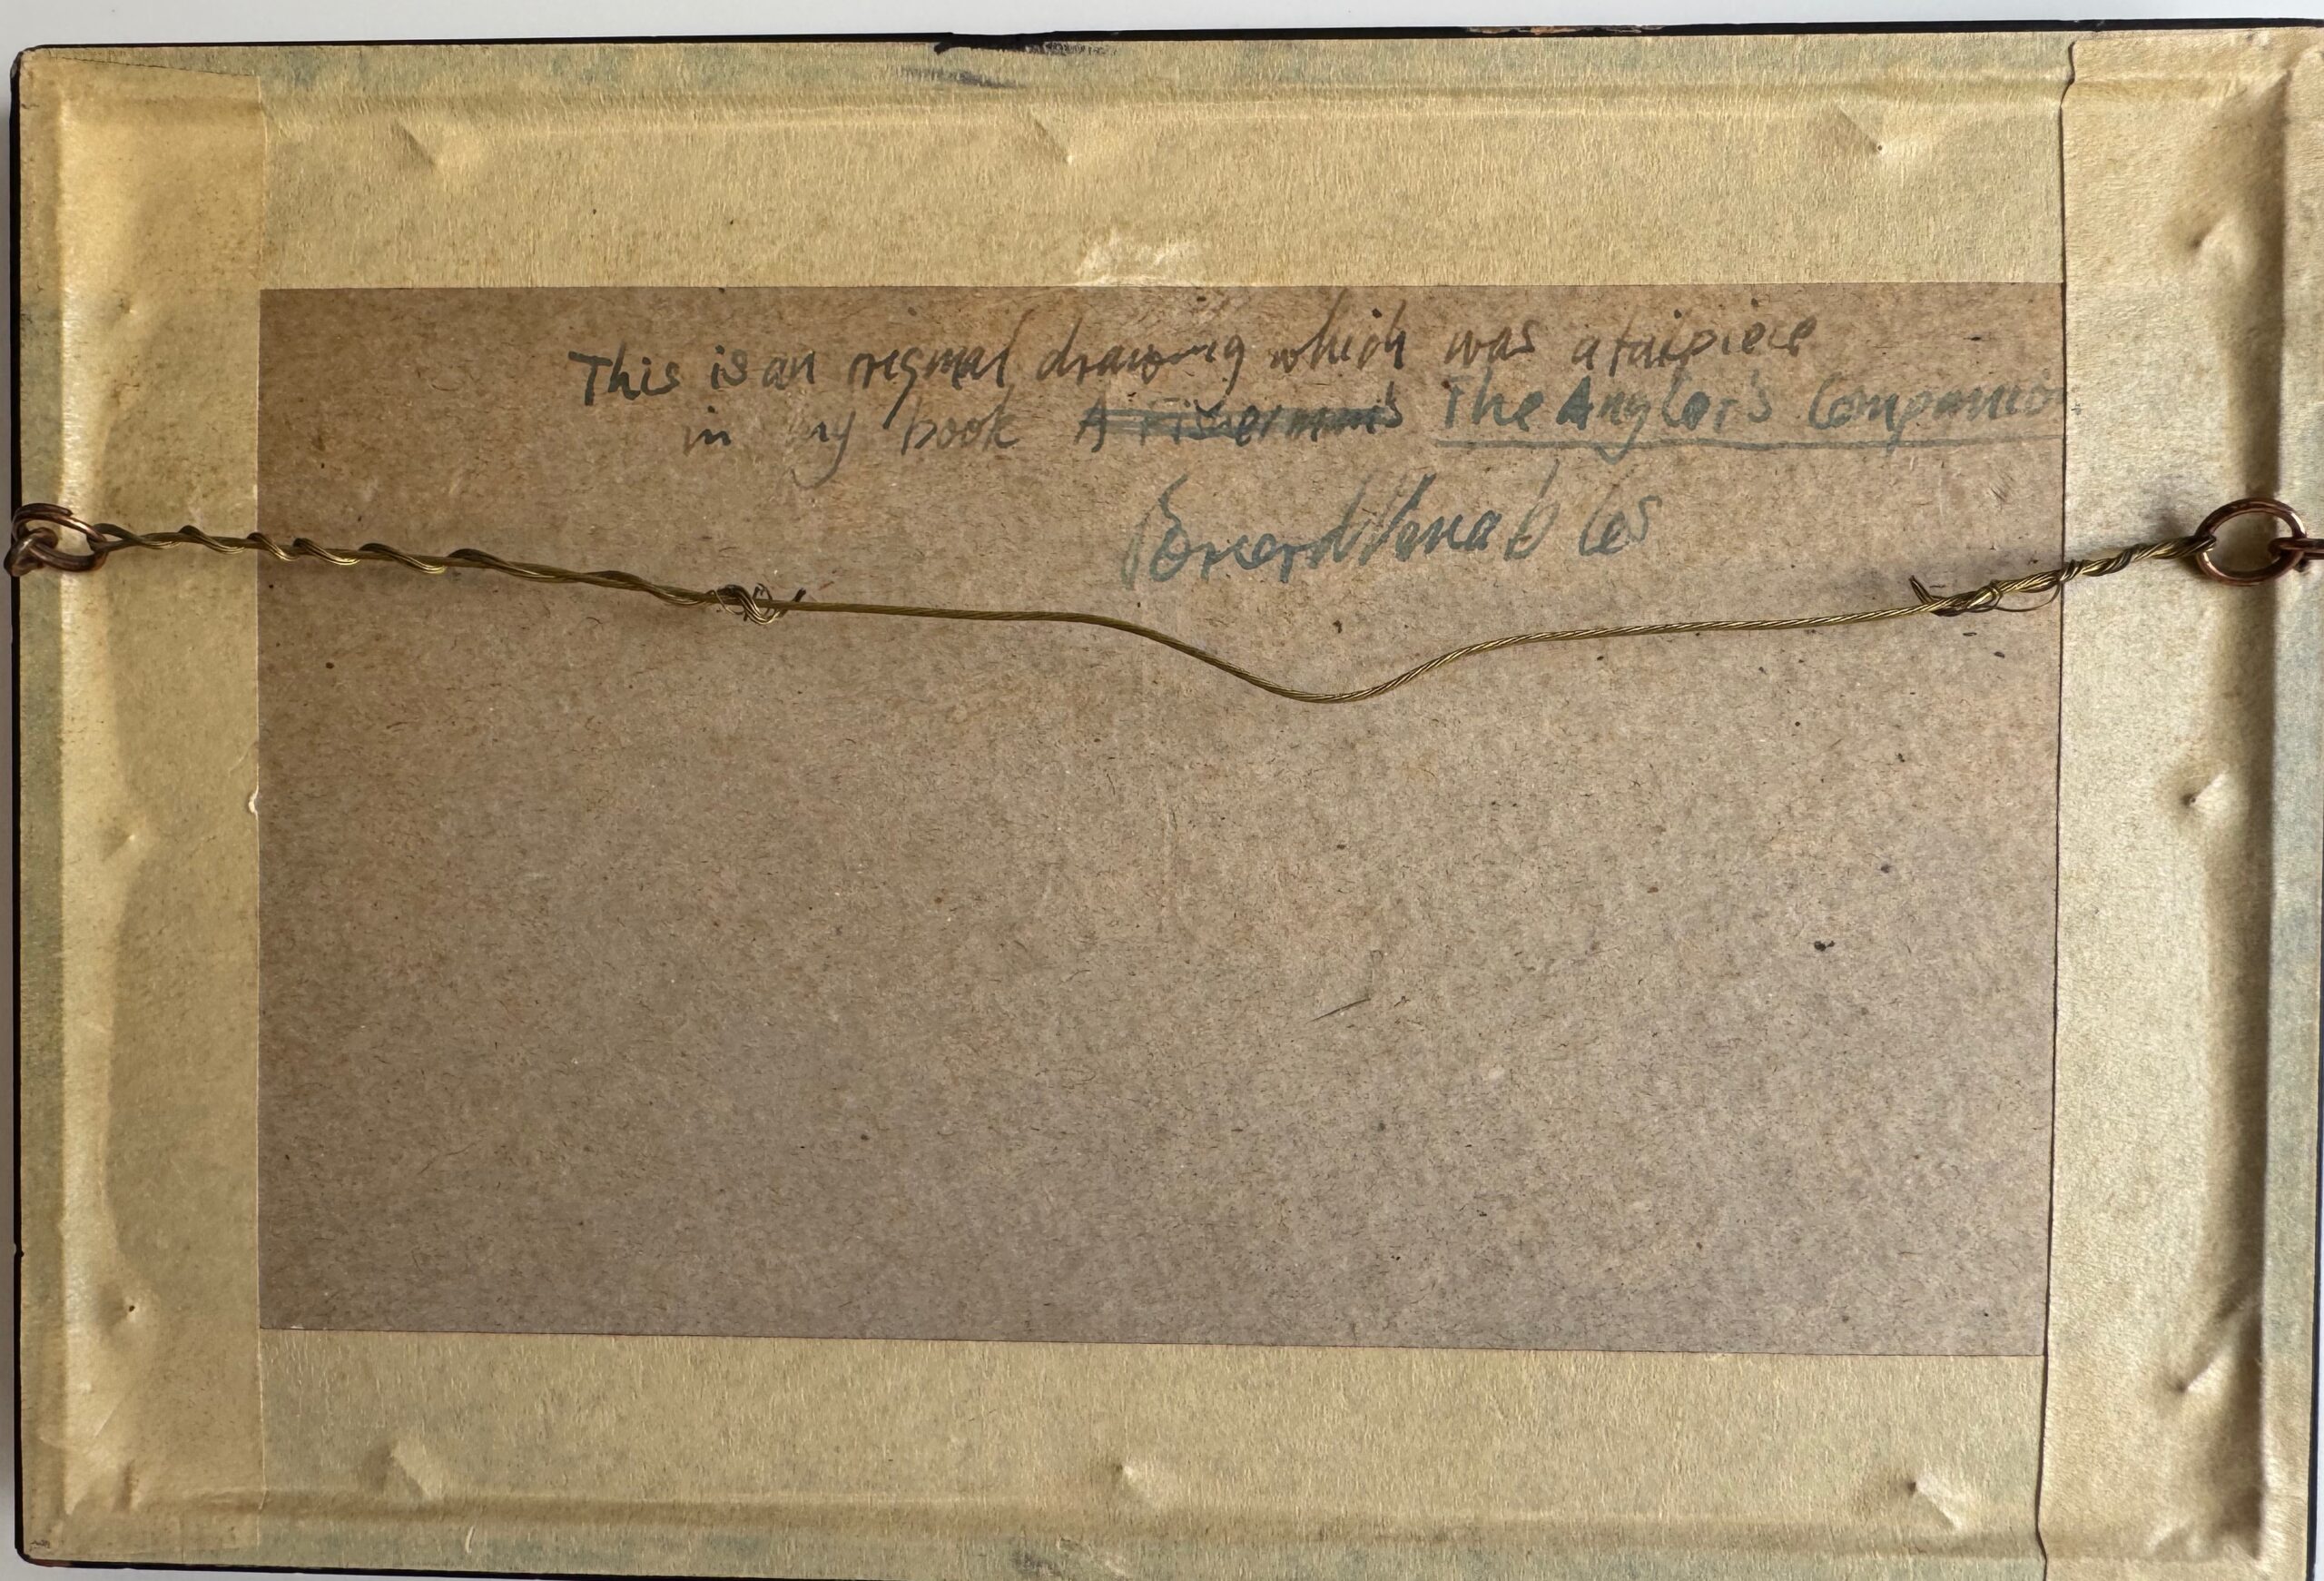 This is an original drawing which was a tailpiece
in my book A Fisherman's The Angler's Companion
Bernard Venables